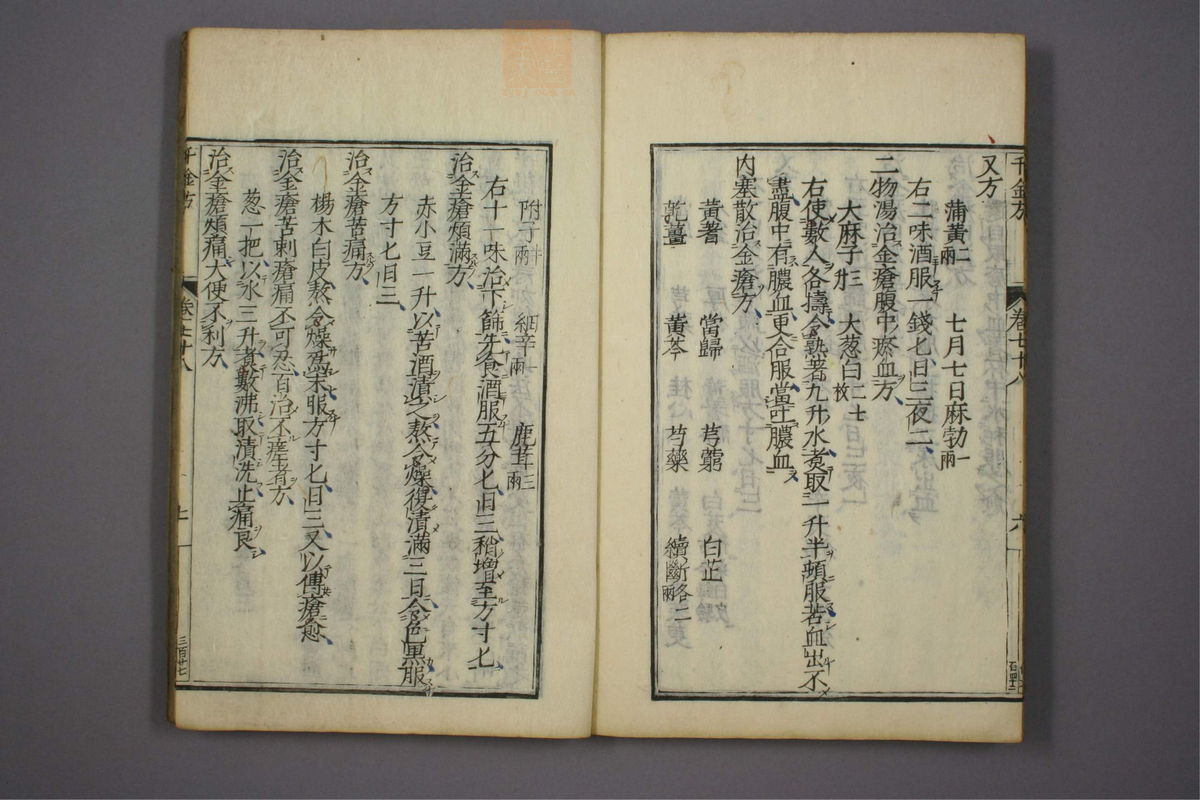 千金方
卷七十八
六
又方
蒲黃二兩 七月七日麻勃一兩
右二味酒服一錢匕日三夜二
二物湯治金瘡腹中瘀血方
大麻子三升 大葱白二七枚
右使數人各擣令熟著九升水煮取一升半頓服若血出不
盡腹中有膿血更合服當吐膿血
內塞散治金瘡方
黃耆 當歸 芎藭 白芷
乾薑 黃芩 芍藥 續斷各二兩
附子半兩 細辛一兩 鹿茸三兩
右十一味治下篩先食酒服五分匕日三稍增至方寸匕
治金瘡煩滿方
赤小豆一升以苦酒漬之熬令燥復漬滿三日令色黑服
方寸匕日三
治金瘡苦痛方
楊木白皮熬令燥末服方寸匕日三又以傅瘡愈
治金瘡苦刺瘡痛不可忍百治不瘥者方
葱一把以水三升煮數沸取漬洗止痛良
治金瘡煩痛大便不利方
千金方
三百廿七